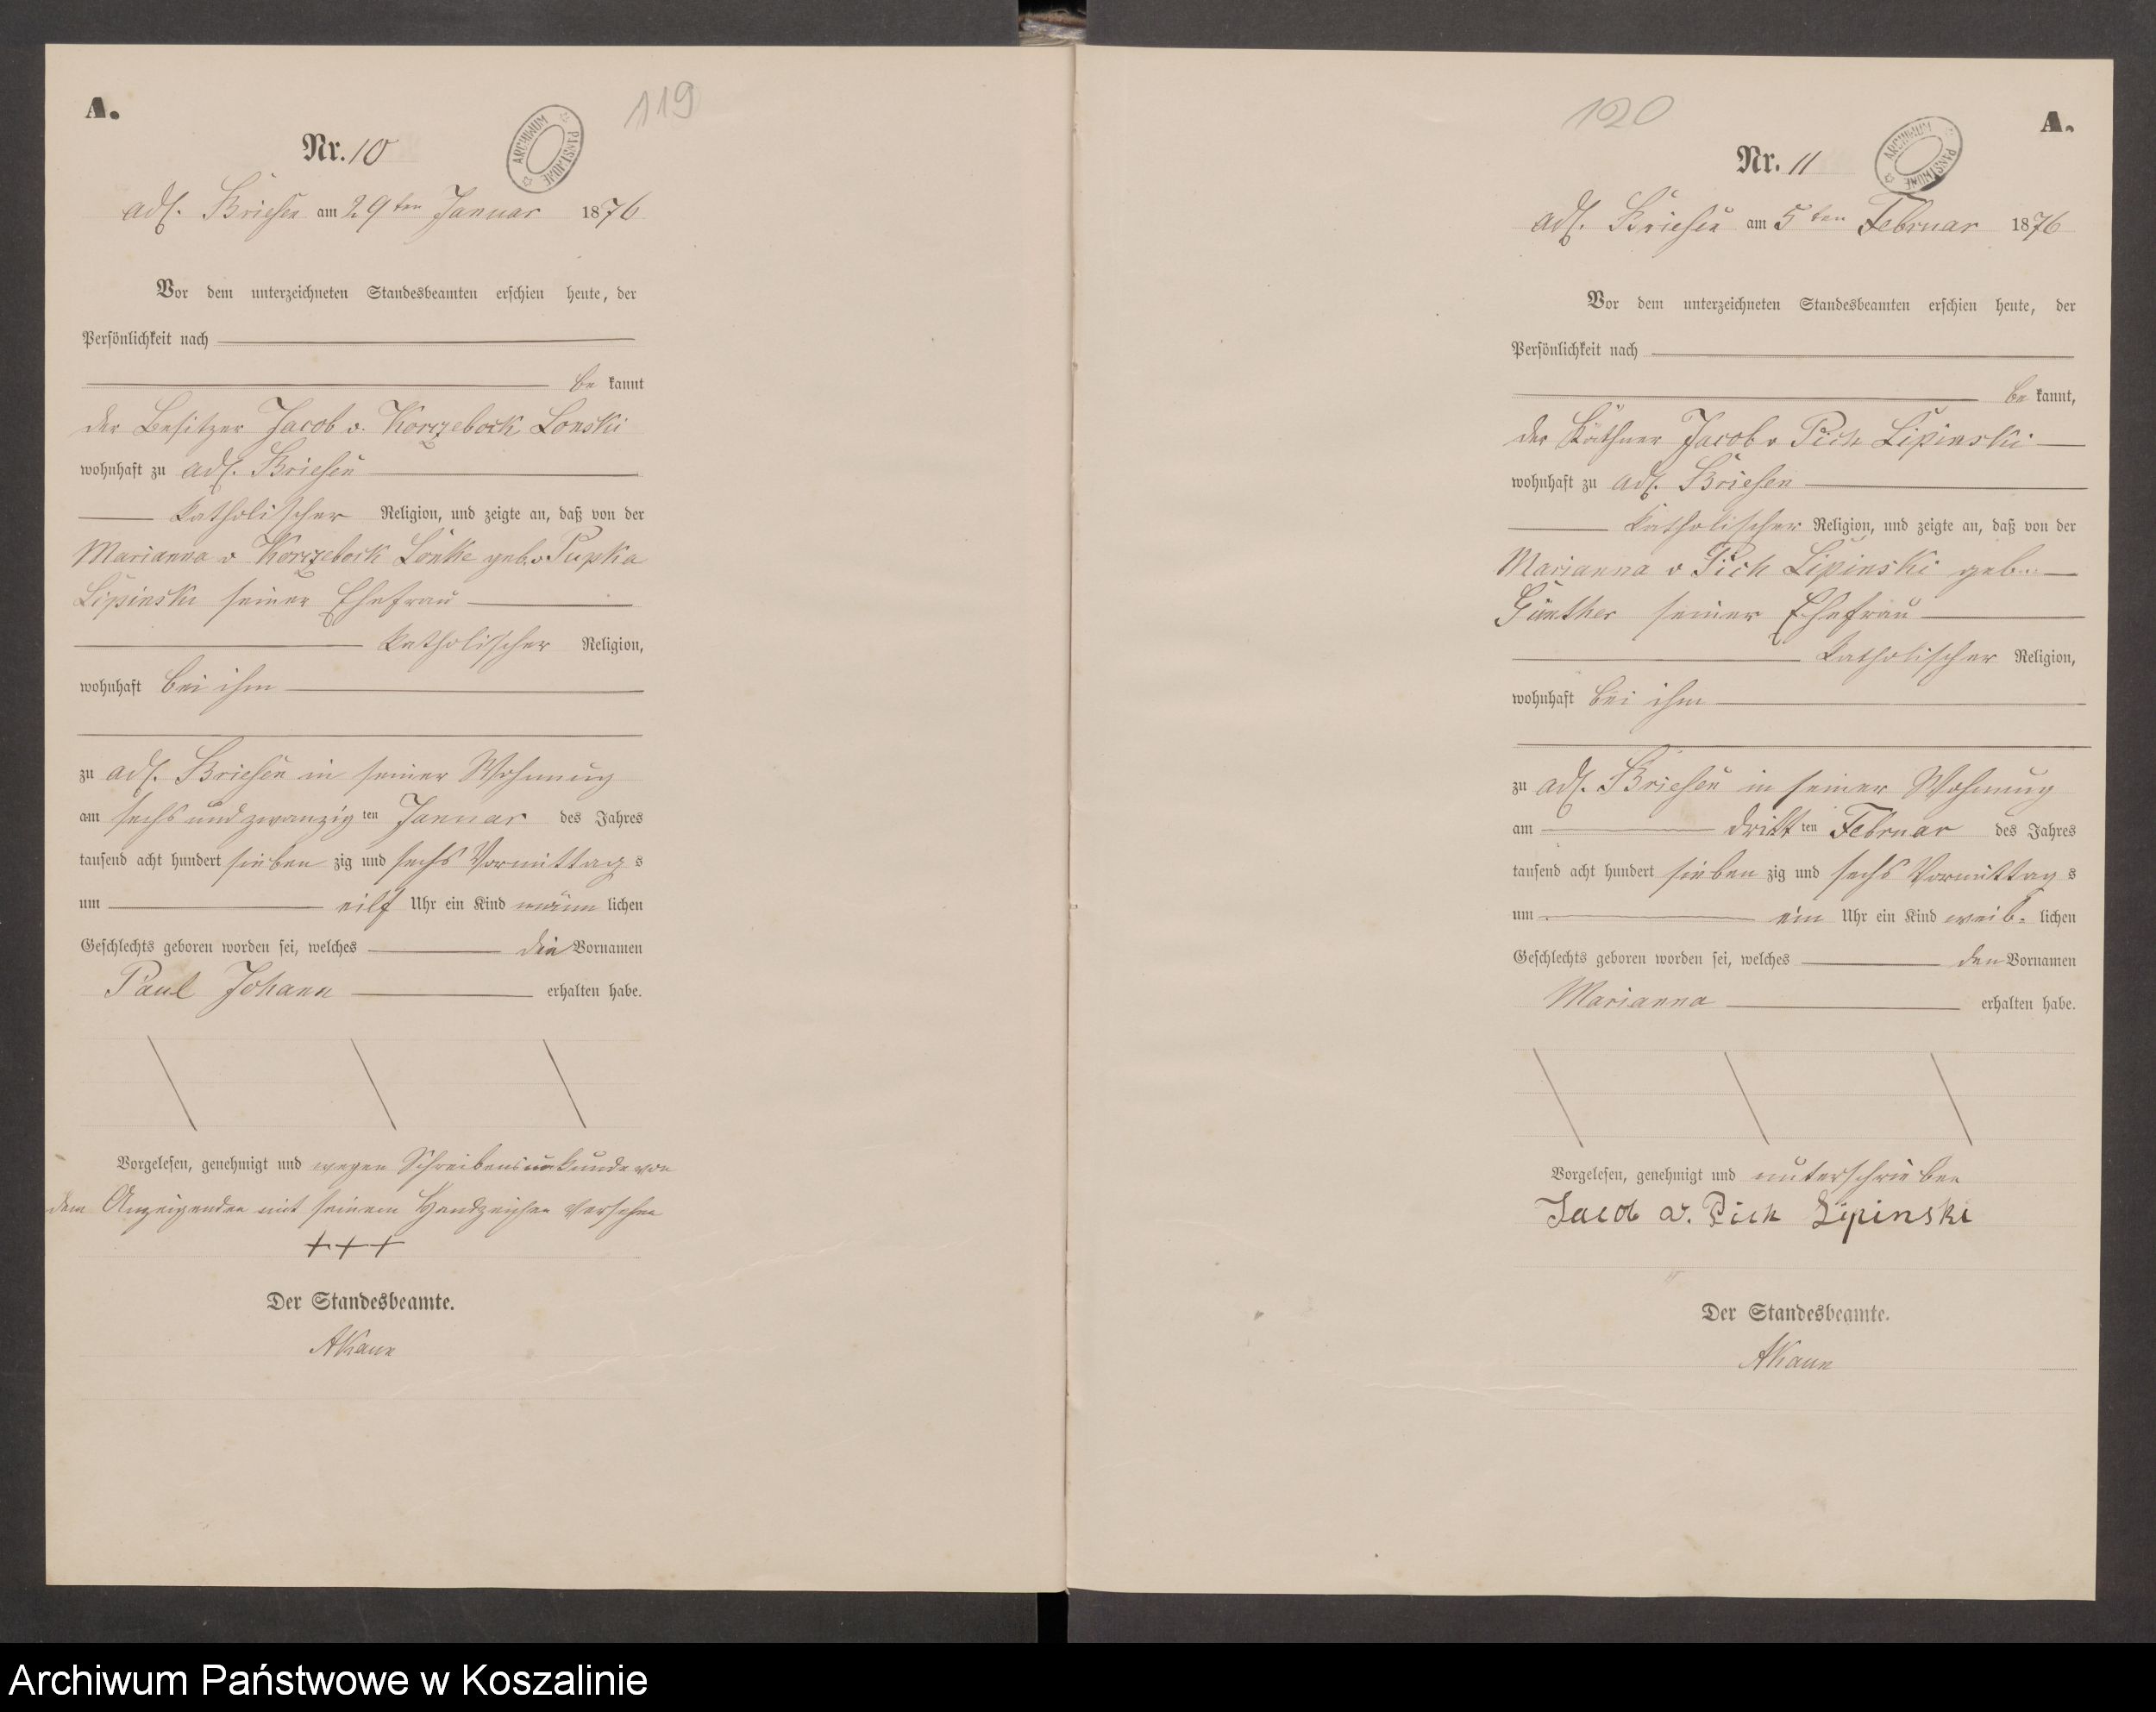 A.
119
Nr. 10
ARCHIWUM PAŃSTWOWE
adl. Briesen am 29ten Januar 1876
Vor dem unterzeichneten Standesbeamten erschien heute, der
Persönlichkeit nach
be kannt
der Besitzer Jacob v. Korzebock Lonski
wohnhaft zu adl. Briesen
katholischer Religion, und zeigte an, daß von der
Marianna v Korzebock Lonke geb. v Pupka
Lipinski seiner Ehefrau
katholischer Religion,
wohnhaft bei ihm
zu adl. Briesen in seiner Wohnung
am sechs und zwanzig ten Januar des Jahres
tausend acht hundert sieben zig und sechs Vormittag s
um eilf Uhr ein Kind männ lichen
Geschlechts geboren worden sei, welches die Vornamen
Paul Johann erhalten habe.
Vorgelesen, genehmigt und wegen Schreibensunkunde von
dem Anzeigenden mit seinem Handzeichen versehen
+++
Der Standesbeamte.
AKaun
120
A.
Nr. 11
ARCHIWUM PAŃSTWOWE
adl. Briesen am 5ten Februar 1876
Vor dem unterzeichneten Standesbeamten erschien heute, der
Persönlichkeit nach
be kannt,
der Käthner Jacob v Pich Lipinski
wohnhaft zu adl. Briesen
katholischer Religion, und zeigte an, daß von der
Marianna v Pich Lipinski geb.
Günther seiner Ehefrau
katholischer Religion,
wohnhaft bei ihm
zu adl. Briesen in seiner Wohnung
am dritt ten Februar des Jahres
tausend acht hundert sieben zig und sechs Vormittag s
um ein Uhr ein Kind weib- lichen
Geschlechts geboren worden sei, welches den Vornamen
Marianna erhalten habe.
Vorgelesen, genehmigt und unterschrieben
Jacob v. Pich Lipinski
Der Standesbeamte.
AKaun
Archiwum Państwowe w Koszalinie